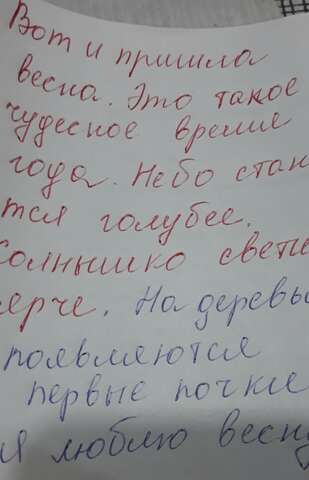 Вот и пришла
весна. Это такое
чудесное время
года. Небо стан
тся голубее.
Солнышко свети
ярче. На деревь
появляются
первые почки
Я люблю весну